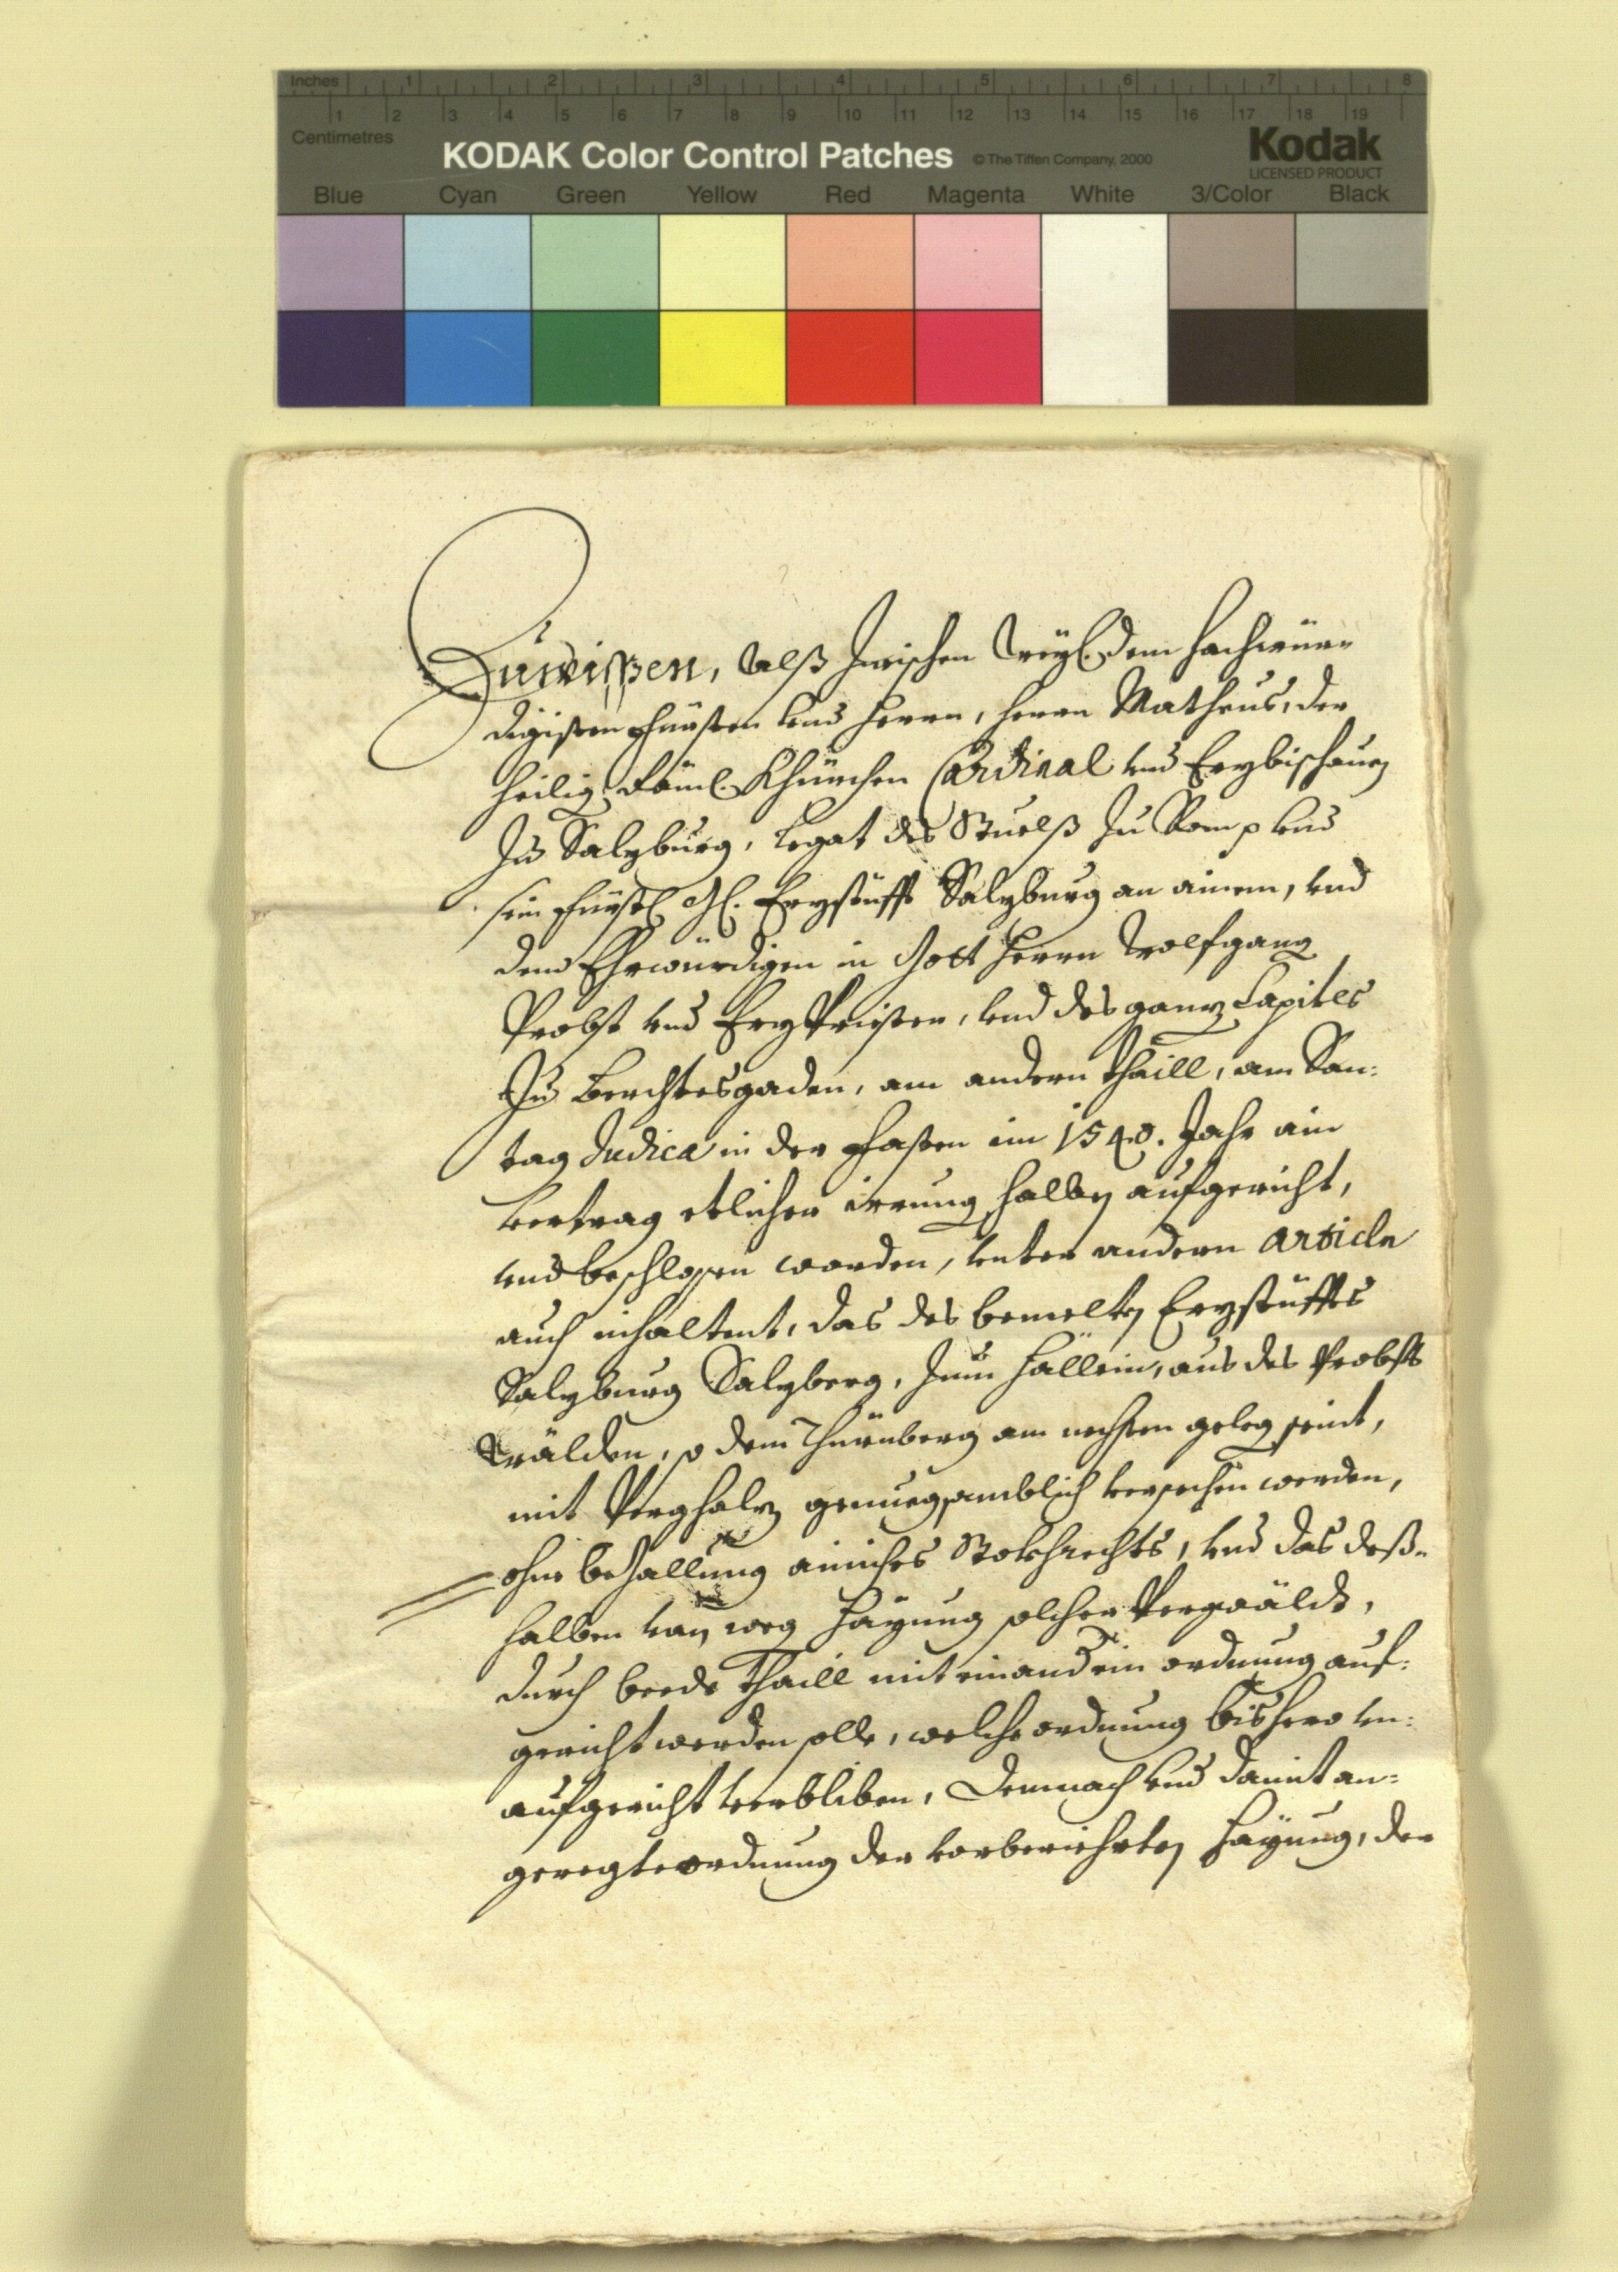 Inches 1 2 3 4 5 6 7 8
1 2 3 4 5 6 7 8 9 10 11 12 13 14 15 16 17 18 19
Centimetres
KODAK Color Control Patches © The Tiffen Company, 2000 Kodak
LICENSED PRODUCT
Blue Cyan Green Yellow Red Magenta White 3/Color Black
Zuwissen, Alß zwischen Weyl. dem Hochwür-
digisten Fürsten vnd Herrn, Herrn Matheus, der
Heilig. Röml. Khürchen Cardinal vnd Erzbischouen
zu Salzburg, Legat des Stuelß zu Rom p vnd
sein Fürstl. Gl. Erzstüfft Salzburg an ainem, vnd
dem Ehrwürdigen in Gott Herrn Wolfgang
Probst vnd ErzPriester, vnd des ganz Capitls
zu Berchtesgaden, am andern thaill, am Son:
tag Judica in der Fasten im 1540. Jahr ain
Vertrag etlicher irrung halben aufgericht,
vnd beschlossen worden, vnter andern Articln
auch inhaltent, das des bemelten Erzstüffts
Salzburg Salzberg, zum Hällein, aus des Probsts
Wälden, so dem Thürnberg am nechsten gelegen seint,
mit Perghalz genuegsamblich versechen werden,
ohne bezallung ainiches Stokhrechts, vnd das deß-
halben von weg Hayung solcher Pergwäldt,
durch beede thaill mit einand ein ordnung auf:
gericht werden solle, welche ordnung bishero vn:
aufgericht verbliben, Demnach vnd damit an=
geregte ordnung der vorberiehrten Hayung, der